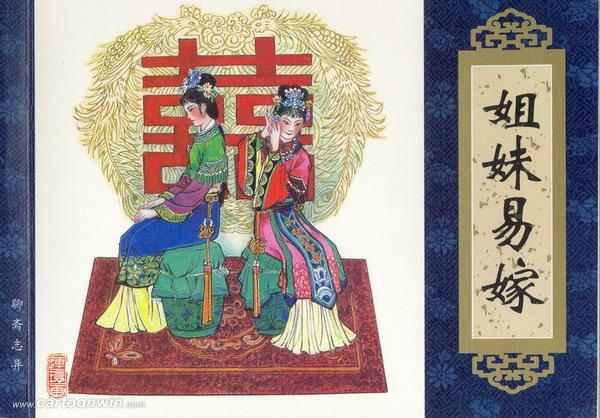 姐妹易嫁
囍
聊斋志异
www.cartoonwin.com